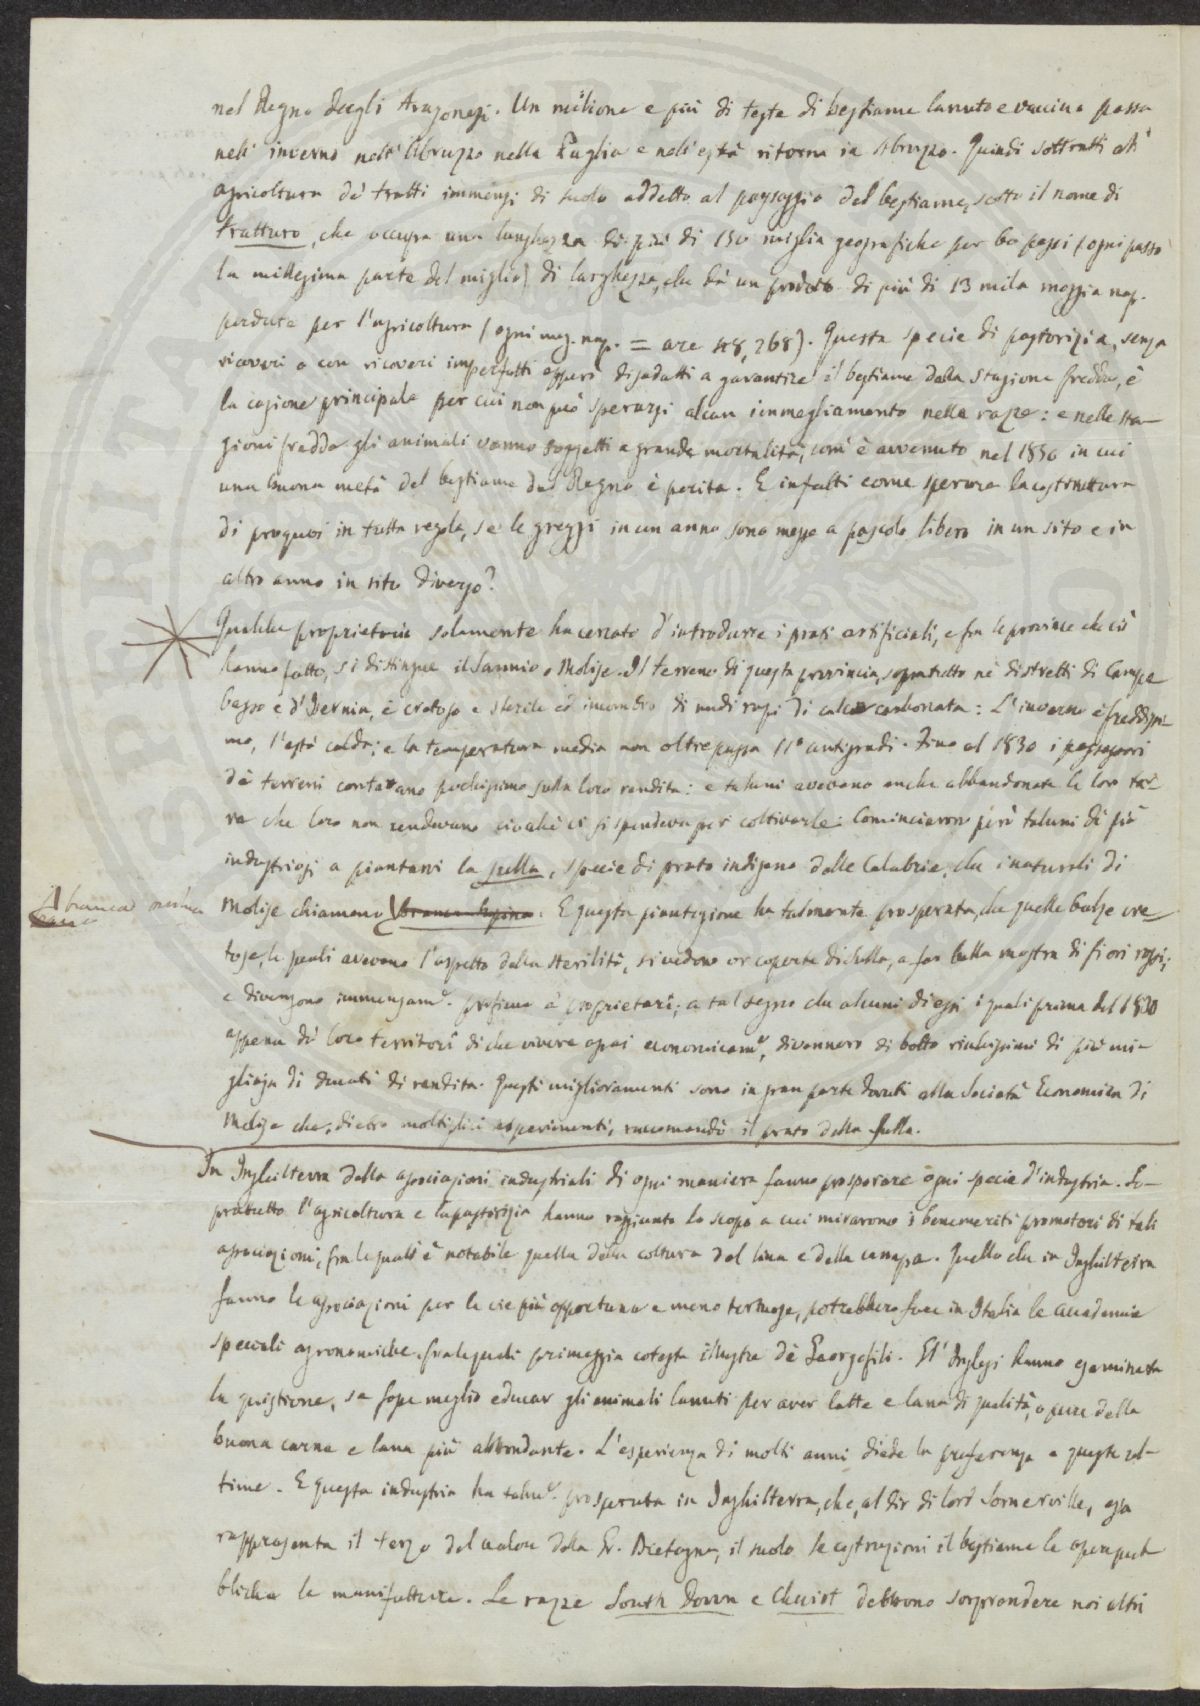 nel Regno degli Aragonesi. Un milione e più di teste di bestiame lanuto e vaccino passa
nell' inverno dall' Abruzzo nella Puglia e nell' està ritorna in Abruzzo. Quindi sottratti all'
agricoltura de' tratti immensi di suolo addetto al passaggio del bestiame, sotto il nome di
tratturo, che occupa una lunghezza di più di 150 miglia geografiche per 60 passi (ogni passo
la millesima parte del miglio) di larghezza, che dà un prodotto di più di 13 mila moggia nap.
perdute per l'agricoltura (ogni mog. nap. = are 48,268). Questa specie di pastorizia, senza
ricoveri o con ricoveri imperfetti disadatti a garantire il bestiame dalla stagione fredda, è
la cagione principale per cui non può sperarsi alcun immegliamento nelle razze: e nelle sta-
gioni fredde gli animali vanno soggetti a grande mortalità, com' è avvenuto nel 1850 in cui
una buona metà del bestiame del Regno è perita. E infatti come sperare la costruttura
di proquoi in tutta regola, se le greggi in un anno sono messe a pascolo libero in un sito e in
altro anno in sito diverso?
Qualche proprietario solamente ha cercato d'introdurre i prati artificiali, e fra le province che ciò
hanno fatto, si distingue il Sannio o Molise. Il terreno di questa provincia, sopratutto ne' distretti di Campo
basso e d'Isernia, è cretoso e sterile ed ingombro di nudi rupi di calce carbonata: L'inverno è freddissi-
mo, l'està calda; e la temperatura media non oltrepassa 11° centigradi. Fino al 1830 i possessori
de' terreni contavano pochissimo sulla loro rendita: e taluni avevano anche abbandonate le loro ter-
re che loro non rendevano ciocchè ci si spendeva per coltivarle. Cominciarono però taluni di più
industriosi a piantarvi la sulla, specie di prato indigeno delle Calabrie, che i naturali di
Molise chiamano branca ursina. E questa piantagione ha talmente prosperata, che quelle balze cre-
tose, le quali avevano l'aspetto della sterilità, si vedono or coperte di sulla, a far bella mostra di fiori rossi;
e divengono immensam.e proficue a' proprietarî; a tal segno che alcuni di essi i quali prima del 1830
appena de' loro territorî di che vivere assai economicam.e, divennero di botto ricchissimi di più mi-
gliaja di ducati di rendita. Questi miglioramenti sono in gran parte dovuti alla Società Economica di
Molise che, dietro moltiplici esperimenti, raccomandò il prato della sulla.
In Inghilterra delle associazioni industriali di ogni maniera fanno prosperare ogni specie d'industria. So-
pratutto l'agricoltura e la pastorizia hanno raggiunto lo scopo a cui mirarono i benemeriti promotori di tali
associazioni; fra le quali è notabile quella della coltura del lino e della canapa. Quello che in Inghilterra
fanno le associazioni per le vie più opportune e meno tortuose, potrebbero fare in Italia le accademie
speciali agronomiche, fra le quali primeggia cotesta illustre de' Georgofili. Gl' Inglesi hanno esaminata
la quistione, se fosse meglio educar gli animali lanuti per aver latte e lana di qualità, o pure della
buona carne e lana più abbondante. L'esperienza di molti anni diede la preferenza a queste ul-
time. E questa industria ha talm.e prosperata in Inghilterra, che, al dir di lord Somerville, essa
rappresenta il terzo del valore della Gr. Bretagna, il suolo le costruzioni il bestiame le opere pub-
bliche le manifatture. Le razze South Down e Cheviot debbono sorprendere noi altri